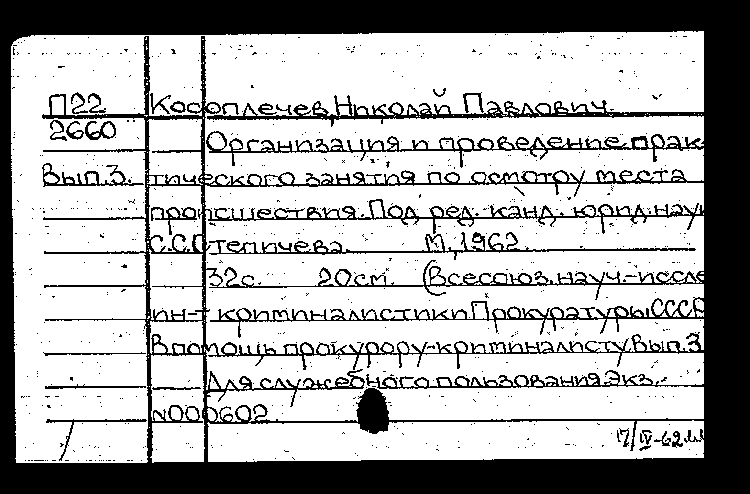 П22 Косоплечев, Николай Павлович.
2660 Организация и проведение прак-
Вып.3. тического занятия по осмотру места
происшествия. Под ред. канд. юрид. наук
С.С. Степичева. М., 1962.
32с. 20см. (Всесоюз. науч.-иссле
ин-т криминалистики Прокуратуры СССР
В помощь прокурору-криминалисту. Вып.3
Для служебного пользования. Экз.
N000602
17/IV-62